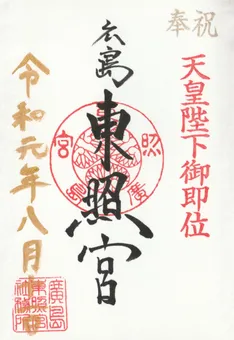 奉祝
天皇陛下御即位
広島
東照宮
令和元年八月
廣島
東照宮
社務所